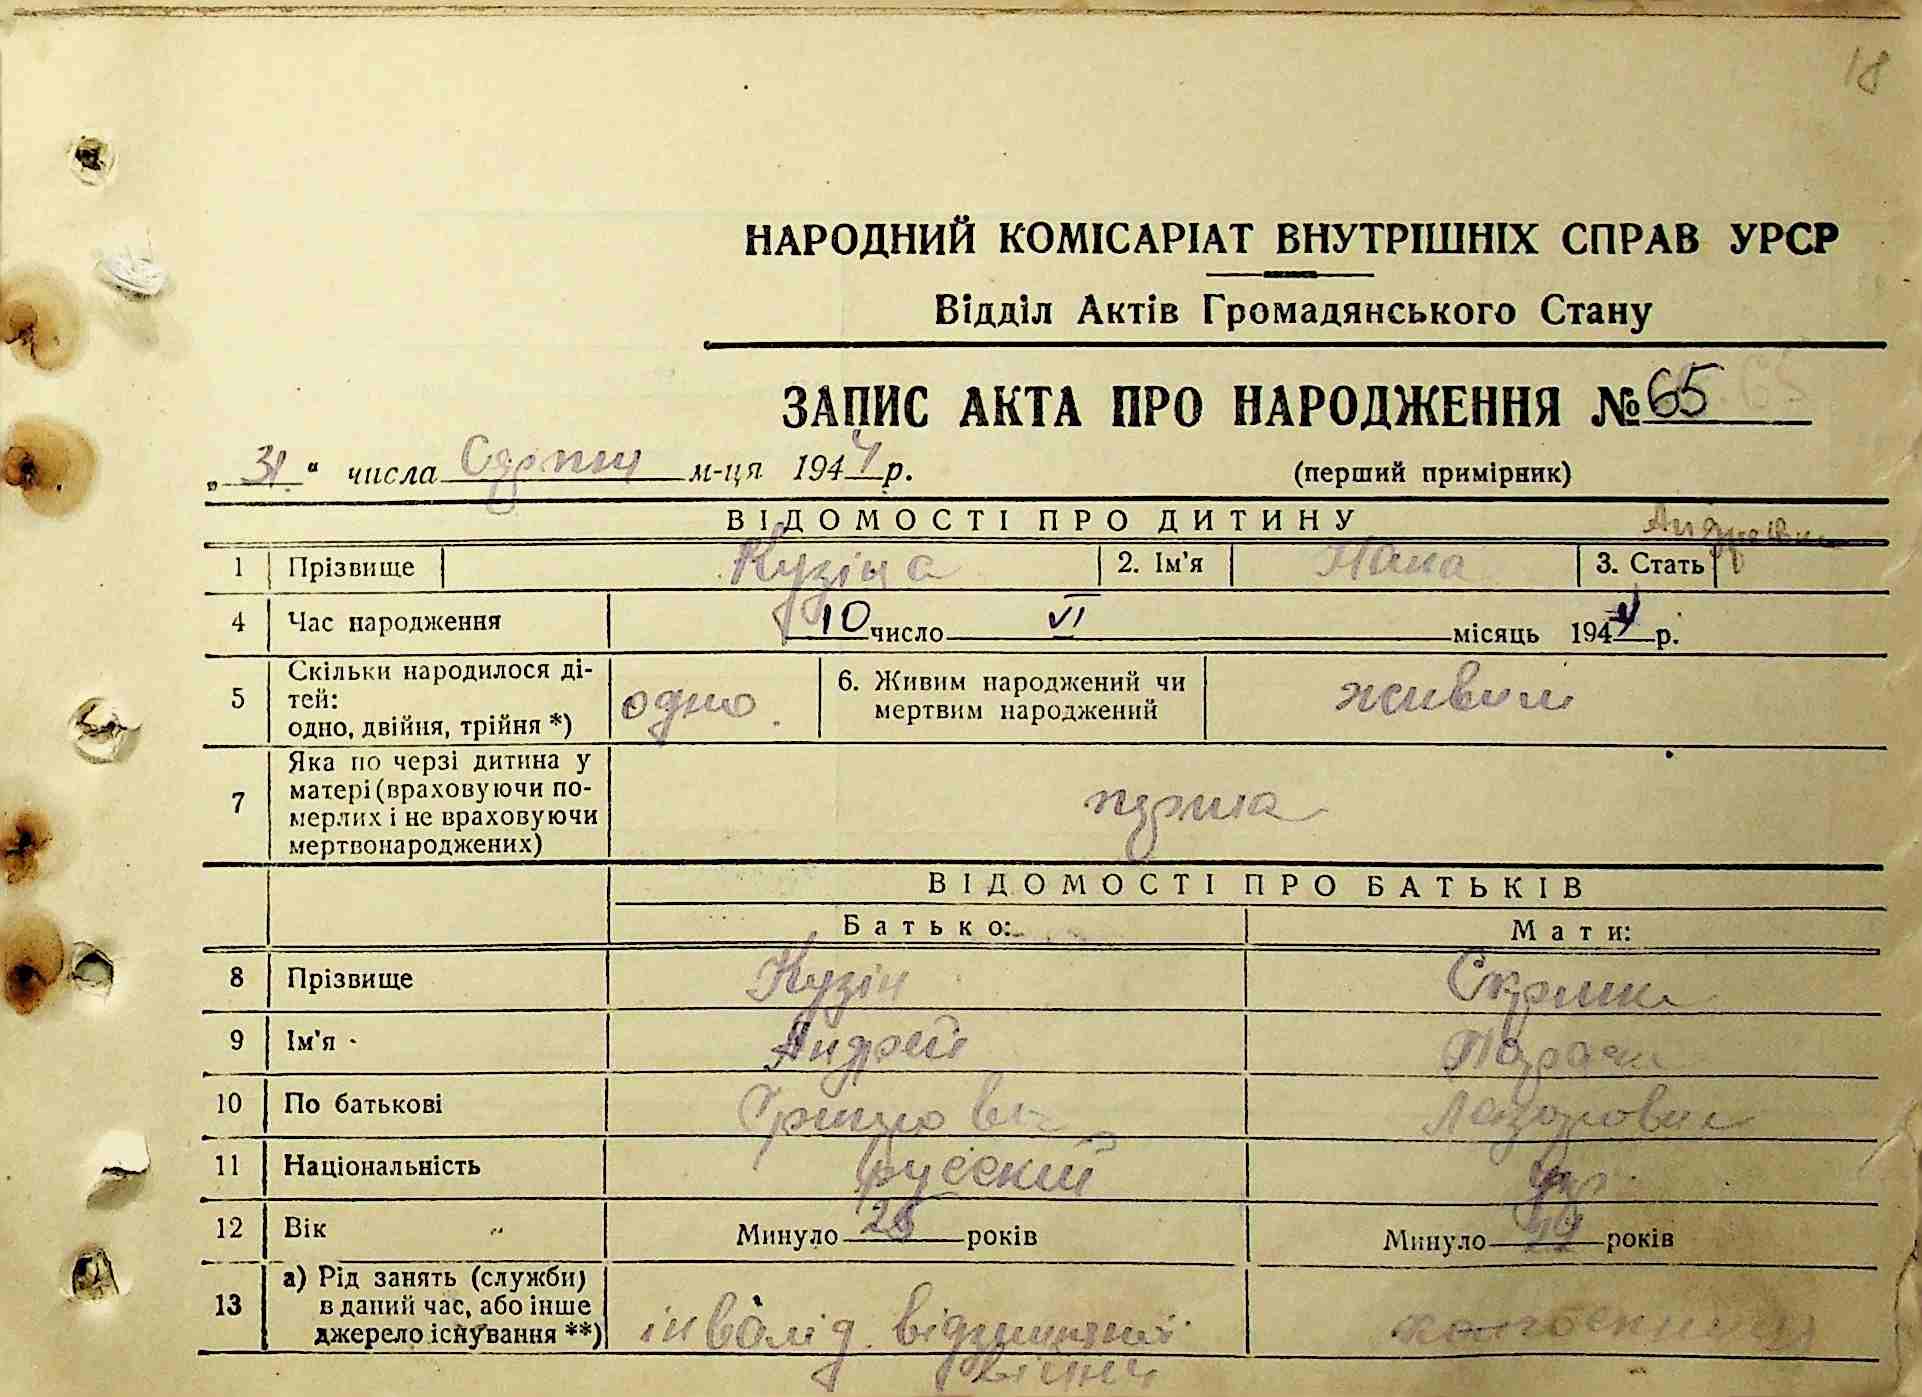 18
НАРОДНИЙ КОМІСАРІАТ ВНУТРІШНІХ СПРАВ УРСР
Відділ Актів Громадянського Стану
ЗАПИС АКТА ПРО НАРОДЖЕННЯ № 65
„31" числа Серпня м-ця 1944 р. (перший примірник)
ВІДОМОСТІ ПРО ДИТИНУ
1 Прізвище Кузіна 2. Ім'я 3. Стать
4 Час народження 10 число VI місяць 1944 р.
5 Скільки народилося ді-
тей:
одно, двійня, трійня *) одно. 6. Живим народжений чи
мертвим народжений живим
7 Яка по черзі дитина у
матері (враховуючи по-
мерлих і не враховуючи
мертвонароджених) перша
ВІДОМОСТІ ПРО БАТЬКІВ
Батько: Мати:
8 Прізвище Кузін
9 Ім'я Андрей
10 По батькові
11 Національність русский укр.
12 Вік Минуло років Минуло років
13 а) Рід занять (служби)
в даний час, або інше
джерело існування **) інвалід
війни колгоспниця